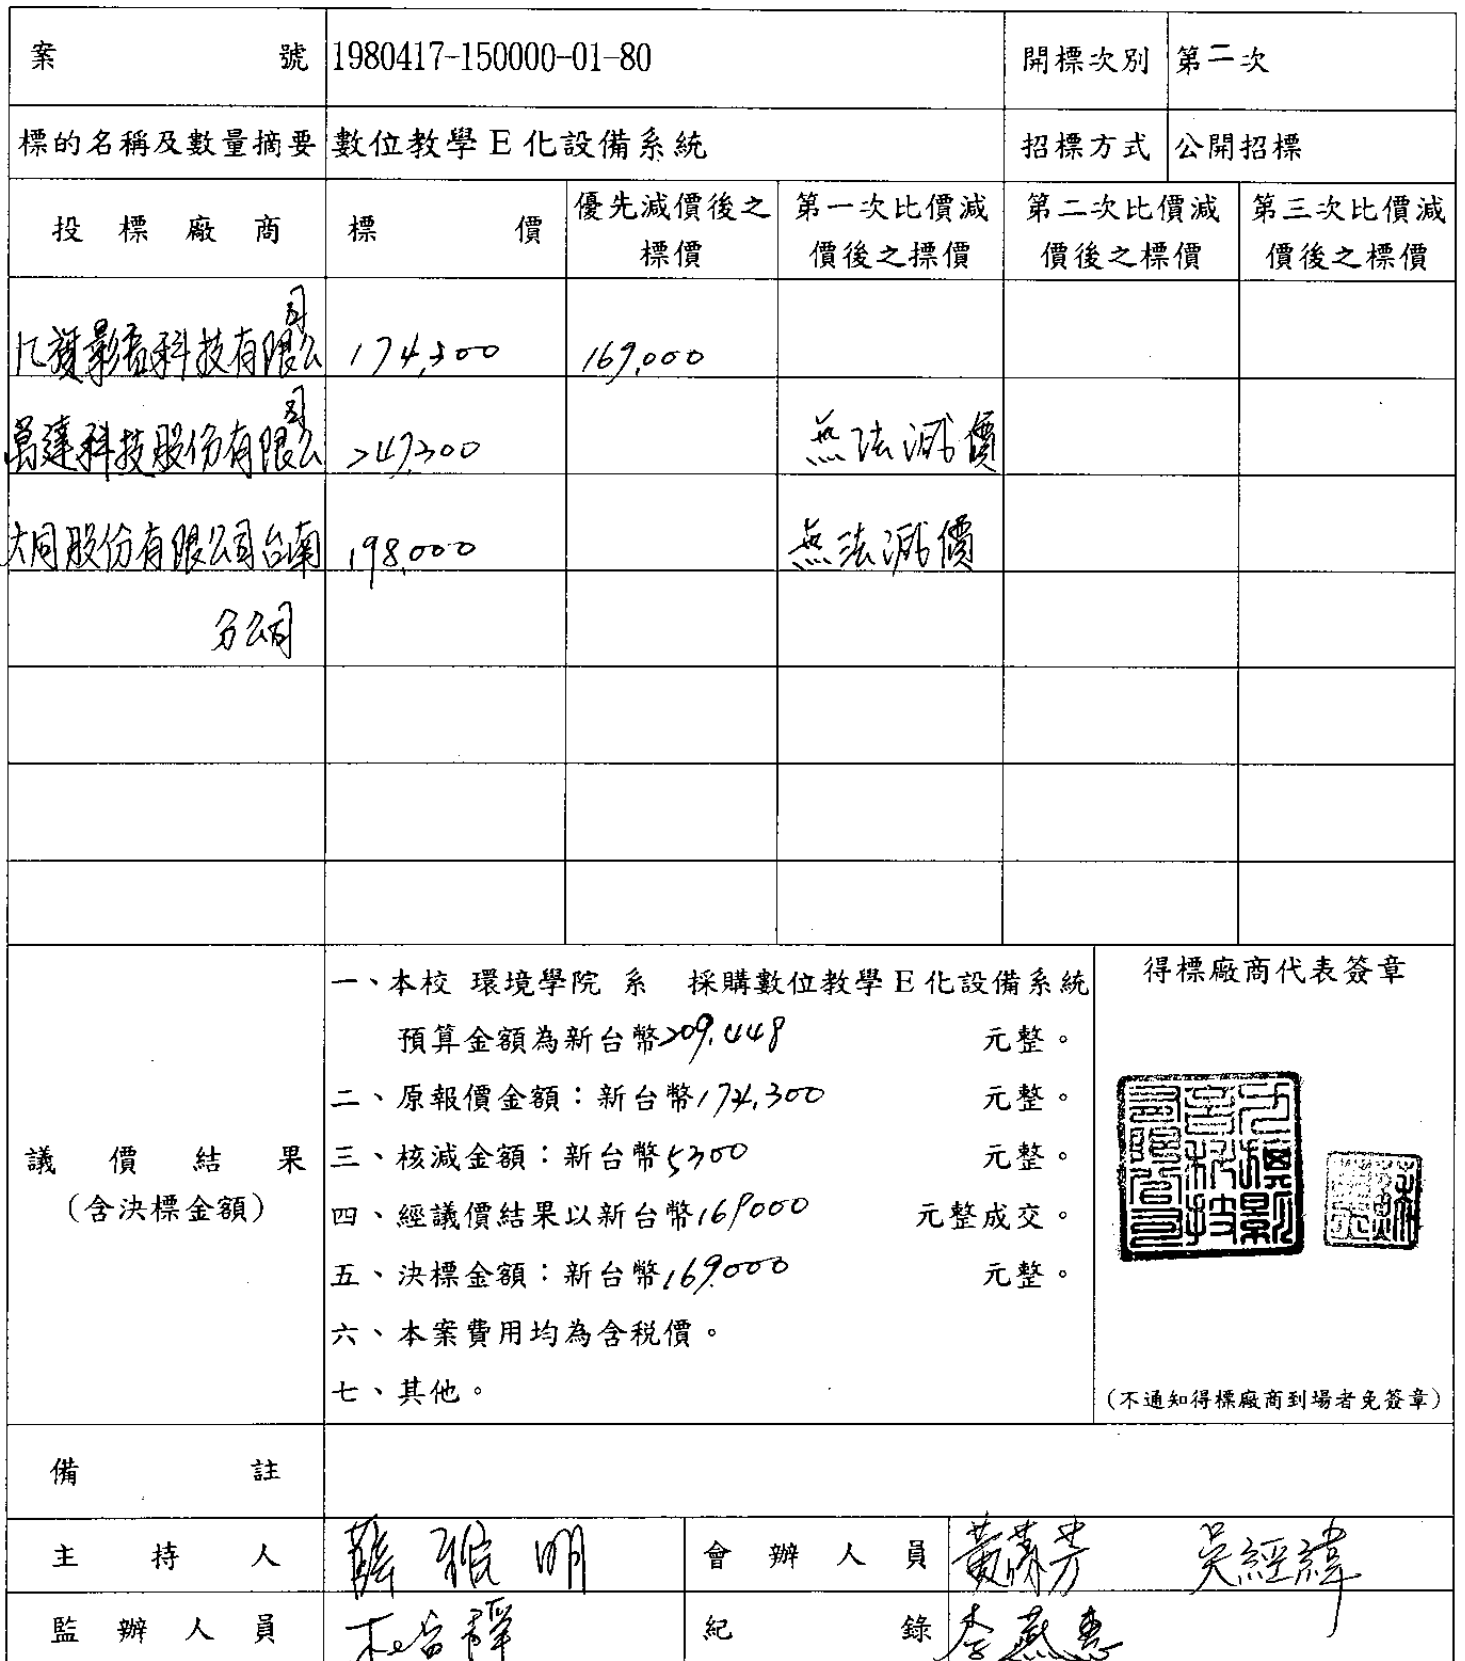 案 號 1980417-150000-01-80 開標次別 第二次
標的名稱及數量摘要 數位教學E化設備系統 招標方式 公開招標
投標廠商 標價 優先減價後之標價 第一次比價減價後之標價 第二次比價減價後之標價 第三次比價減價後之標價
科技有限公司 174,300 169,000
萬達科技股份有限公司 247,300 無法減價
大同股份有限公司台南 198,000 無法減價
分公司
議價結果
(含決標金額)
一、本校 環境學院 系 採購數位教學E化設備系統
預算金額為新台幣209,448 元整。
二、原報價金額：新台幣174,300 元整。
三、核減金額：新台幣5300 元整。
四、經議價結果以新台幣169000 元整成交。
五、決標金額：新台幣169,000 元整。
六、本案費用均為含稅價。
七、其他。
得標廠商代表簽章
(不通知得標廠商到場者免簽章)
備註
主持人 薛雅明 會辦人員 吳經緯
監辦人員 紀錄 李燕惠